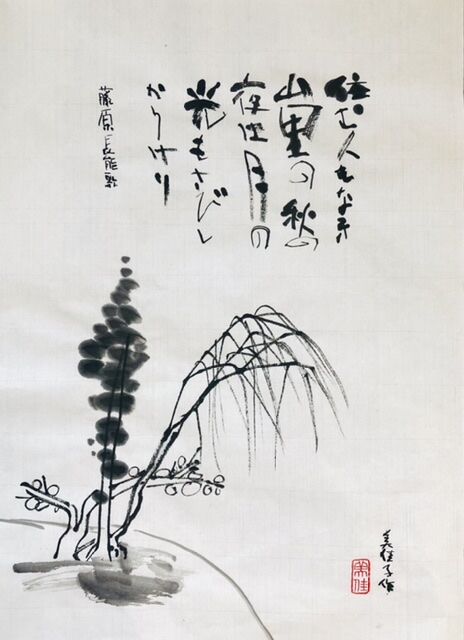 住む人もなき
山里の秋の
夜は月の
光もさびし
かりけり
藤原長能歌
美佳子作
美佳